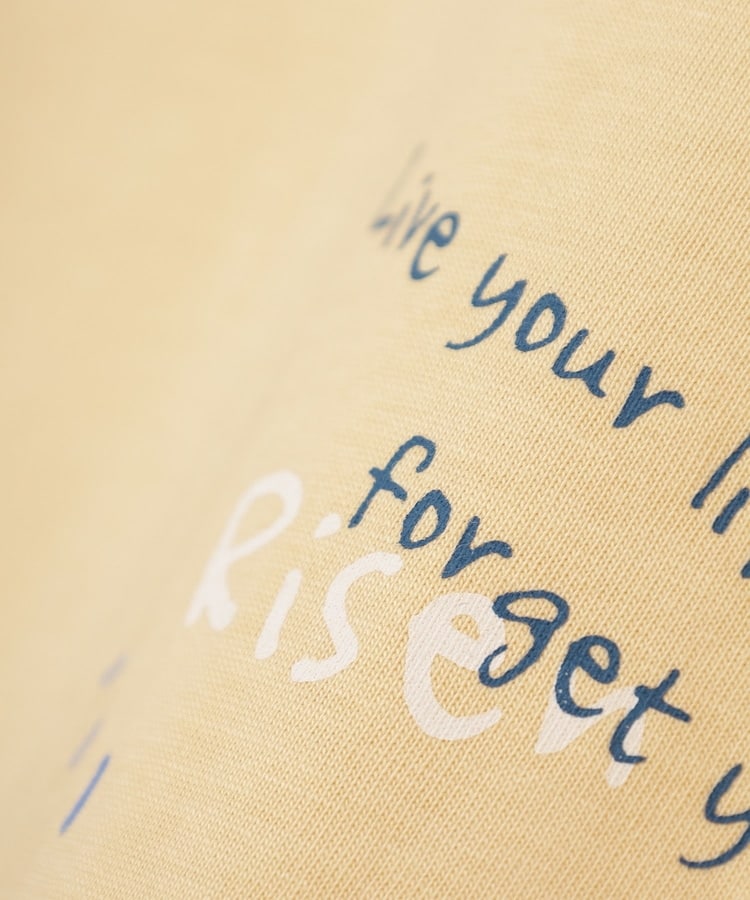 Live your li
forget y
Risen